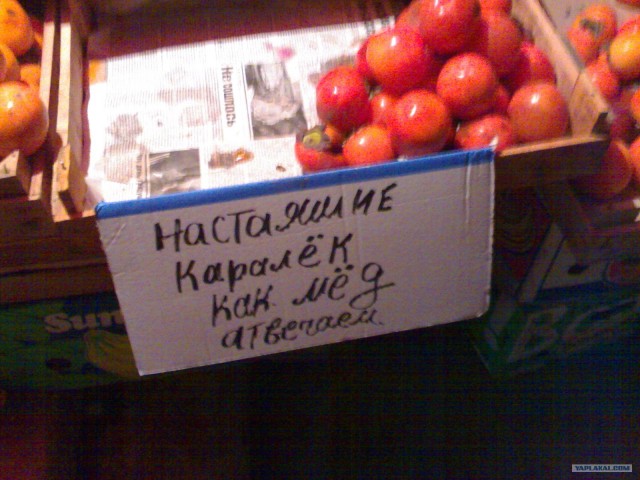 Не сошлось
Настаяшие
Каралёк
как мёд
атвечаем
Sun
YAPLAKAL.COM